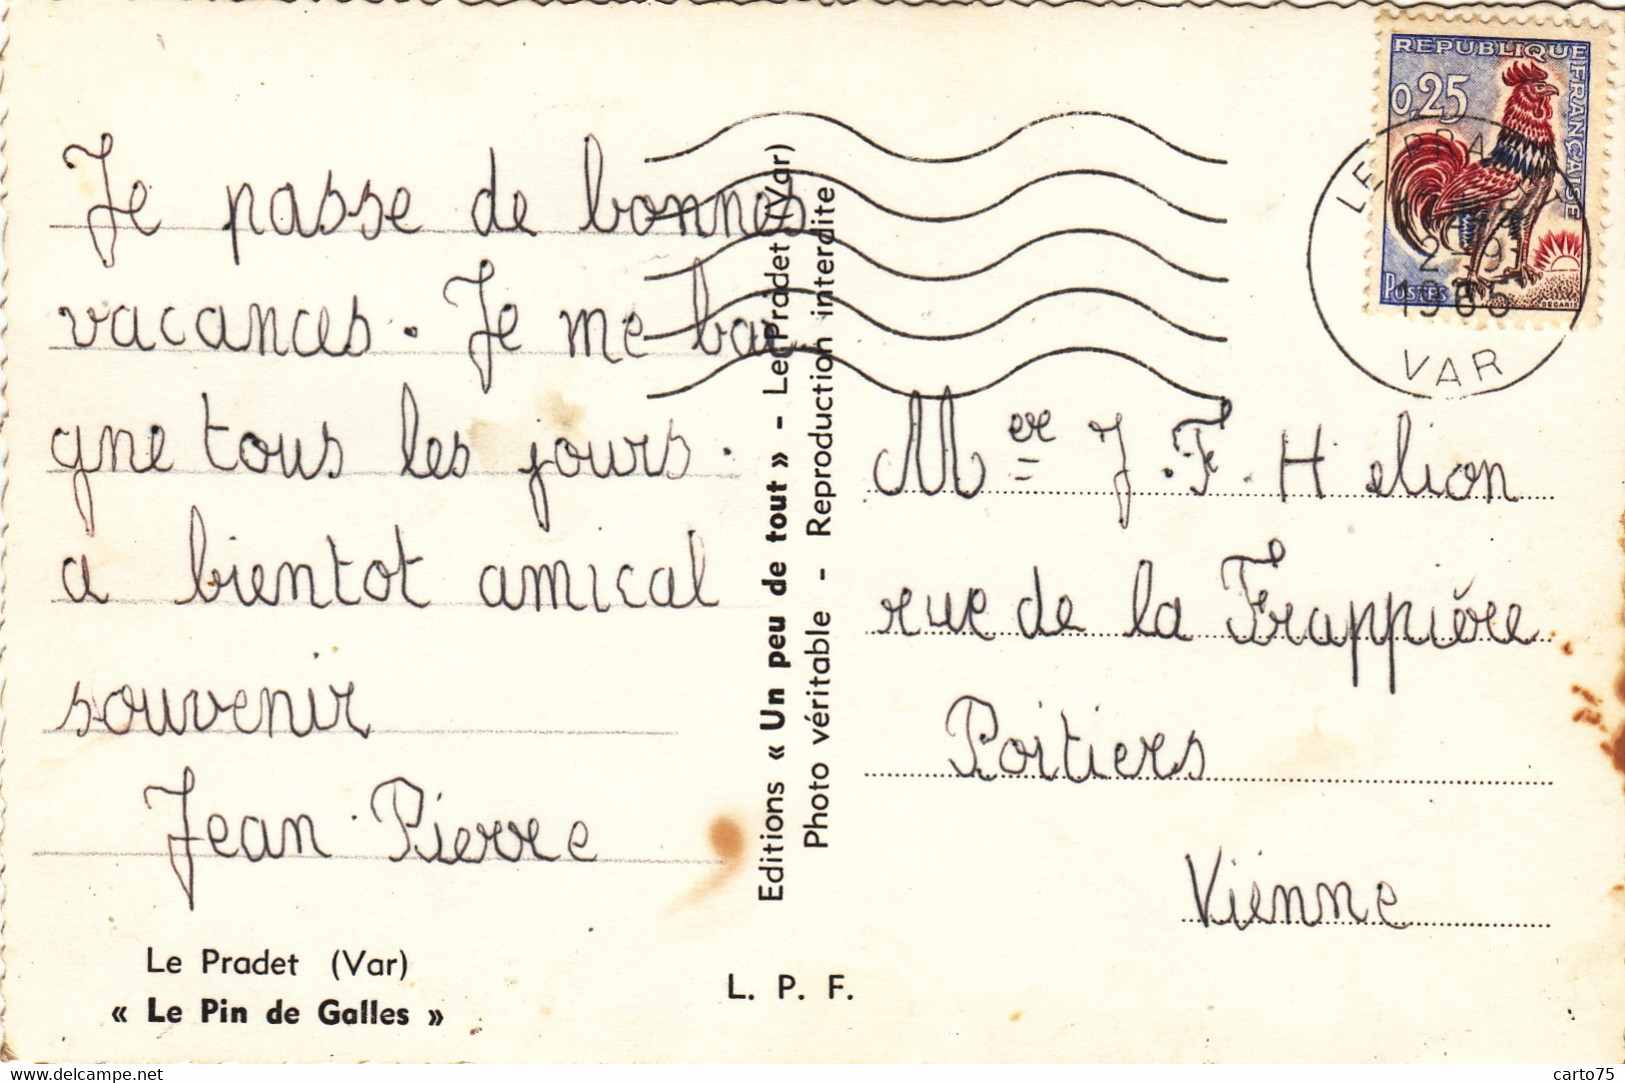 Je passe de bonnes
vacances. Je me bai
gne tous les jours.
a bientot amical
souvenir
Jean Pierre
Le Pradet (Var)
« Le Pin de Galles »
Editions « Un peu de tout » - Le Pradet (Var)
Photo véritable - Reproduction interdite
L. P. F.
REPUBLIQUE FRANÇAISE
0,25
POSTES
DECARIS
LE PRADET
1965
VAR
Mer J.F. Helion
rue de la Frappière
Poitiers
Vienne
delcampe.net
carto75